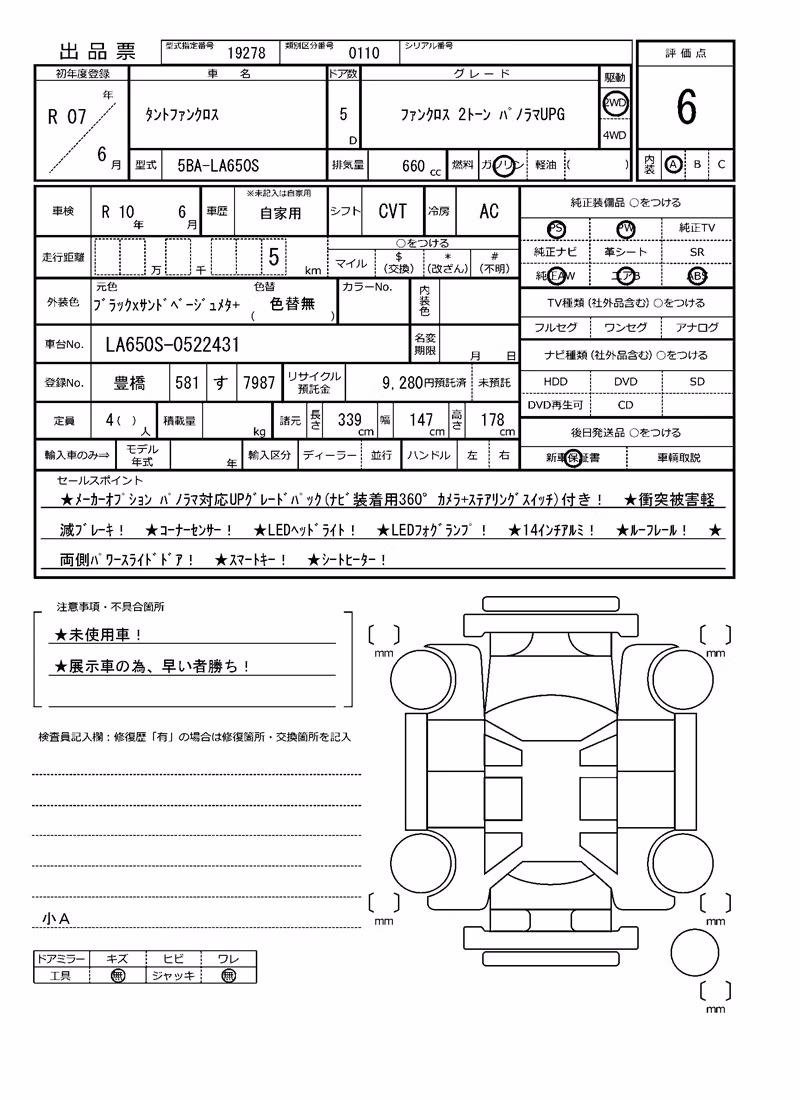 出品票 型式指定番号 19278 類別区分番号 0110 シリアル番号
評価点
初年度登録 車 名 ドア数 グレード 駆動
R 07 年 6 月 タントファンクロス 5 D ファンクロス 2トーン パノラマUPG 2WD 4WD
6
型式 5BA-LA650S 排気量 660 cc 燃料 ガソリン 軽油 ( )
内装 A B C
車検 R 10 年 6 月 車歴 ※未記入は自家用 自家用 シフト CVT 冷房 AC
走行距離 万 千 5 km
○をつける
マイル $(交換) *(改ざん) #(不明)
外装色 元色 ブラックxサンドベージュメタ+ 色替 ( 色替無 ) カラーNo. 内装色
車台No. LA650S-0522431 名変期限 月 日
登録No. 豊橋 581 す 7987 リサイクル預託金 9,280円預託済 未預託
定員 4( ) 人 積載量 kg 諸元 長さ 339 cm 幅 147 cm 高さ 178 cm
輸入車のみ⇒ モデル年式 年 輸入区分 ディーラー 並行 ハンドル 左 右
純正装備品 ○をつける
PS PW 純正TV
純正ナビ 革シート SR
純正AW エアB ABS
TV種類(社外品含む) ○をつける
フルセグ ワンセグ アナログ
ナビ種類(社外品含む) ○をつける
HDD DVD SD
DVD再生可 CD
後日発送品 ○をつける
新車保証書 車輌取説
セールスポイント
★メーカーオプション パノラマ対応UPグレードパック(ナビ装着用360° カメラ+ステアリングスイッチ)付き! ★衝突被害軽
減ブレーキ! ★コーナーセンサー! ★LEDヘッドライト! ★LEDフォグランプ! ★14インチアルミ! ★ルーフレール! ★
両側パワースライドドア! ★スマートキー! ★シートヒーター!
注意事項・不具合箇所
★未使用車!
★展示車の為、早い者勝ち!
mm mm
検査員記入欄:修復歴「有」の場合は修復箇所・交換箇所を記入
小A
mm mm
ドアミラー キズ ヒビ ワレ
工具 無 ジャッキ 無
mm